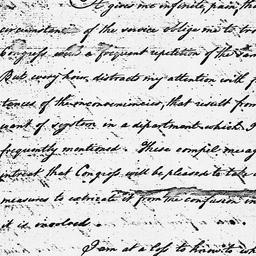 It gives me infinite pain, tha
circumstances of the service oblige me to tro
Congress, with a frequent repetition of the sam
But every hour, distracts my attention with f
tances of the inconveniencies, that result from
want of system in a department which I
frequently mentioned. These compel me ag
intreat that Congress, will be pleased to take
measures to extricate it from the confusion in
it is involved.
I am at a loss to know to wh